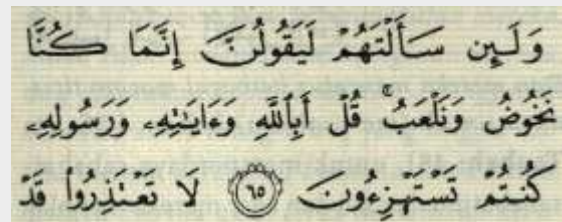 وَلَئِن سَأَلْتَهُمْ لَيَقُولُنَّ إِنَّمَا كُنَّا
نَخُوضُ وَنَلْعَبُ ۚ قُلْ أَبِاللَّهِ وَءَايَـٰتِهِۦ وَرَسُولِهِۦ
كُنتُمْ تَسْتَهْزِءُونَ ٦٥ لَا تَعْتَذِرُوا۟ قَدْ